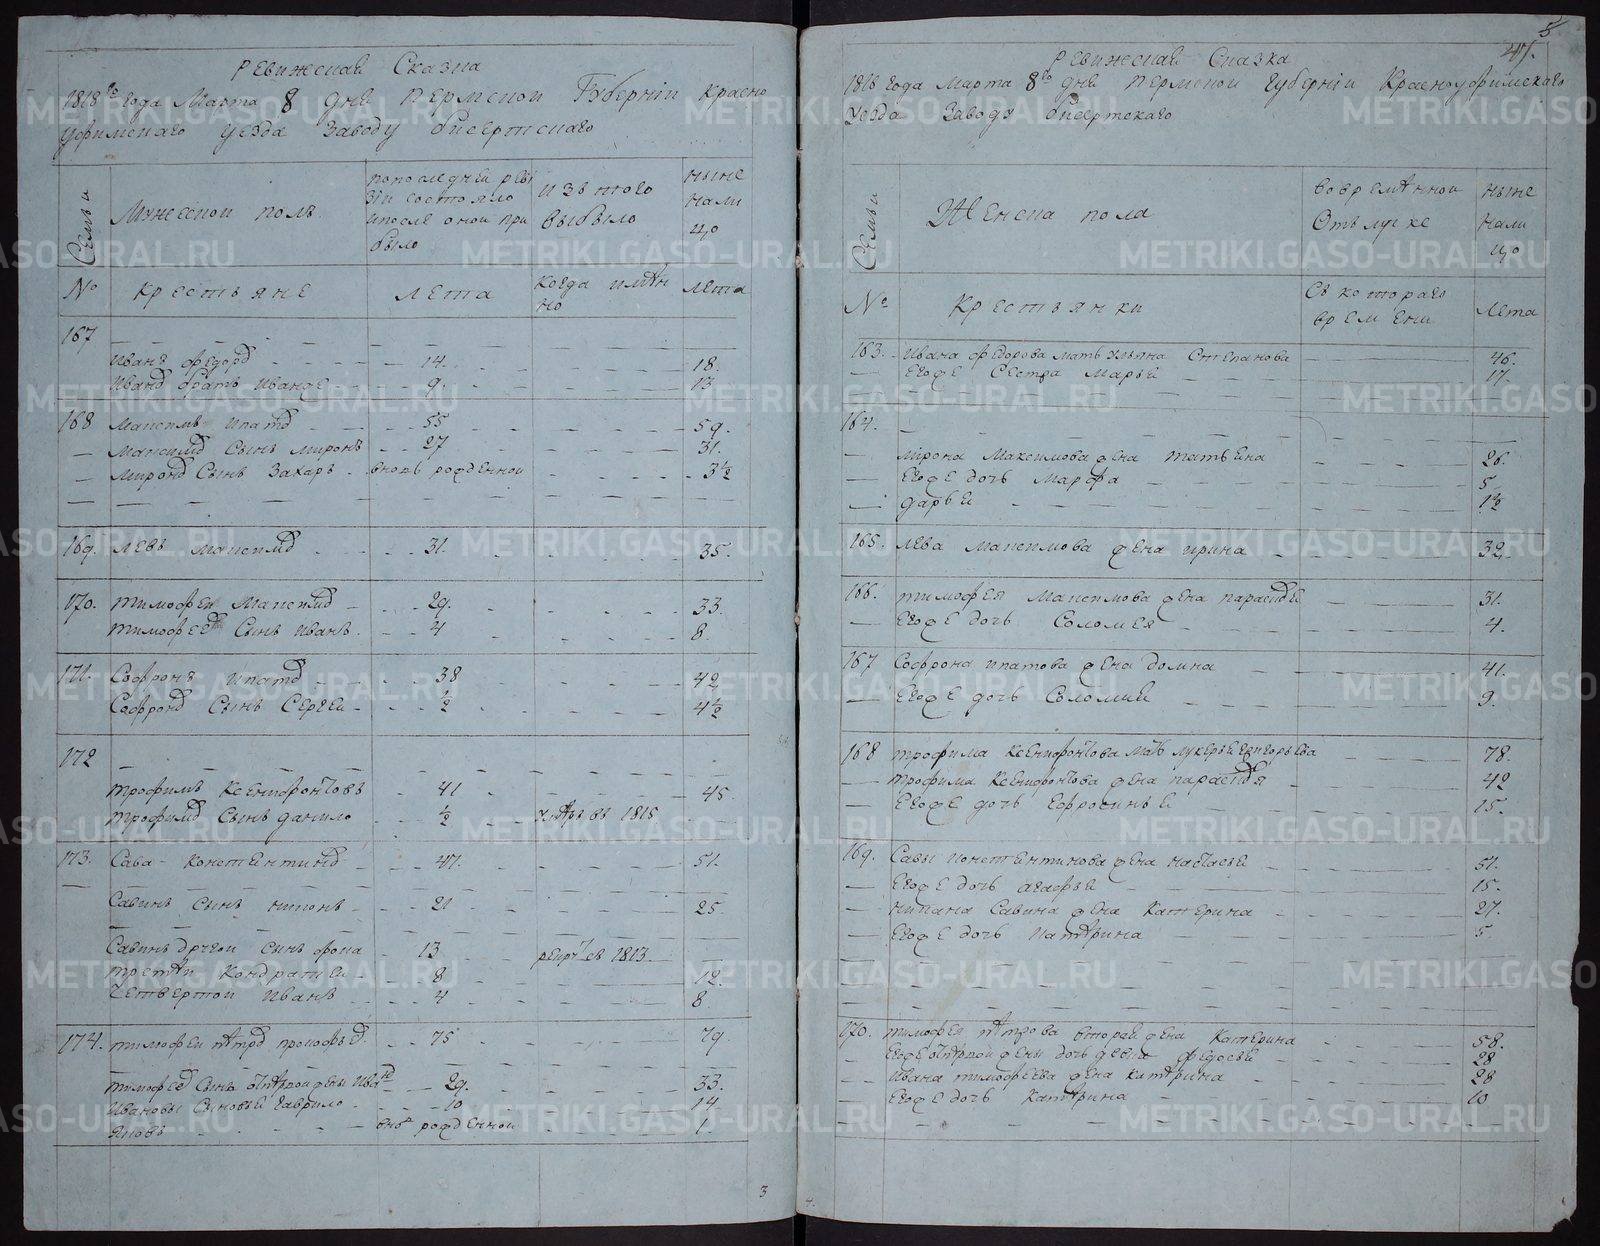 Ревижская Сказка
1818го года Марта 8 дня Пермской Губернiи Красно
уфимскаго уезда Заводу бисертскаго
Семьи
Мужескои полъ
попоследней реви
зiи состояло
ипосле онои при
было
изъ того
выбыло
ныне
нали
цо
№
Крестьяне
лета
когда имѣн
но
лета
167
Иванъ федоров 14. 18.
Иванов братъ Иван же 9. 13
168 Максимъ ипатов 55 59.
Максимов Сынъ миронъ 27 31.
Миронов Сынъ Захаръ вновь рожденнои 3½
169. левъ максимов 31. 35.
170. тимофеи Максимов 29. 33.
тимофеев Сынъ Иванъ 4 8.
171. Софронъ ипатов 38 42
Софронов Сынъ Сергеи ½ 4½
172
трофимъ Ксенофонтовъ 41 45
трофимов Сынъ данило ½ умѣръ въ 1815
173. Сава Констентинов 47. 51.
Савинъ Сынъ никонъ 21 25.
Савинъ другои Сынъ фома 13 рекрутъ въ 1813
третѣи Кондратеи 8 12.
Четвертои Иванъ 4 8.
174. тимофеи пѣтров прокофьев 75 79.
тимофеев Сынъ отпѣрвои жены Иванъ 29. 33.
Ивановы Сыновья гаврило 10 14
Яковъ внов рожденнои 1.
3
5
47.
Ревижская Сказка
1818 года Марта 8го дня Пермской Губернiи Красноуфимскаго
уезда Заводу бисертскаго
Семьи
Женска пола
вовремѣннои
Отълучке
ныне
нали
цо
№
Крестьянки
Съ котораго
времени
лета
163. Ивана федорова мать ульяна Степанова 46.
Егоже Сестра марья 17.
164.
мирона Максимова жена татьяна 26.
Егоже дочь марфа 5
дарья 1½
165. лева максимова жена ирина 32
166. тимофея Максимова жена парасковья 31.
Егоже дочь Соломея 4.
167 Софрона ипатова жена домна 41.
Егоже дочь Соломия 9.
168 трофима Ксенофонтова мать лукерья григорьева 78.
трофима Ксенофонтова жена парасковья 42
Егоже дочь Ефросинья 15.
169. Савы Констентинова жена настасья 51.
Егоже дочь агафья 15.
никона Савина жена Катерина 27.
Егоже дочь Катѣрина 5.
170. тимофея пѣтрова вторая жена Катерина 58.
Егоже отпѣрвои жены дочь девка федосья 28
Ивана тимофеева жена катѣрина 28
Егоже дочь Катѣрина 10
METRIKI.GASO-URAL.RU